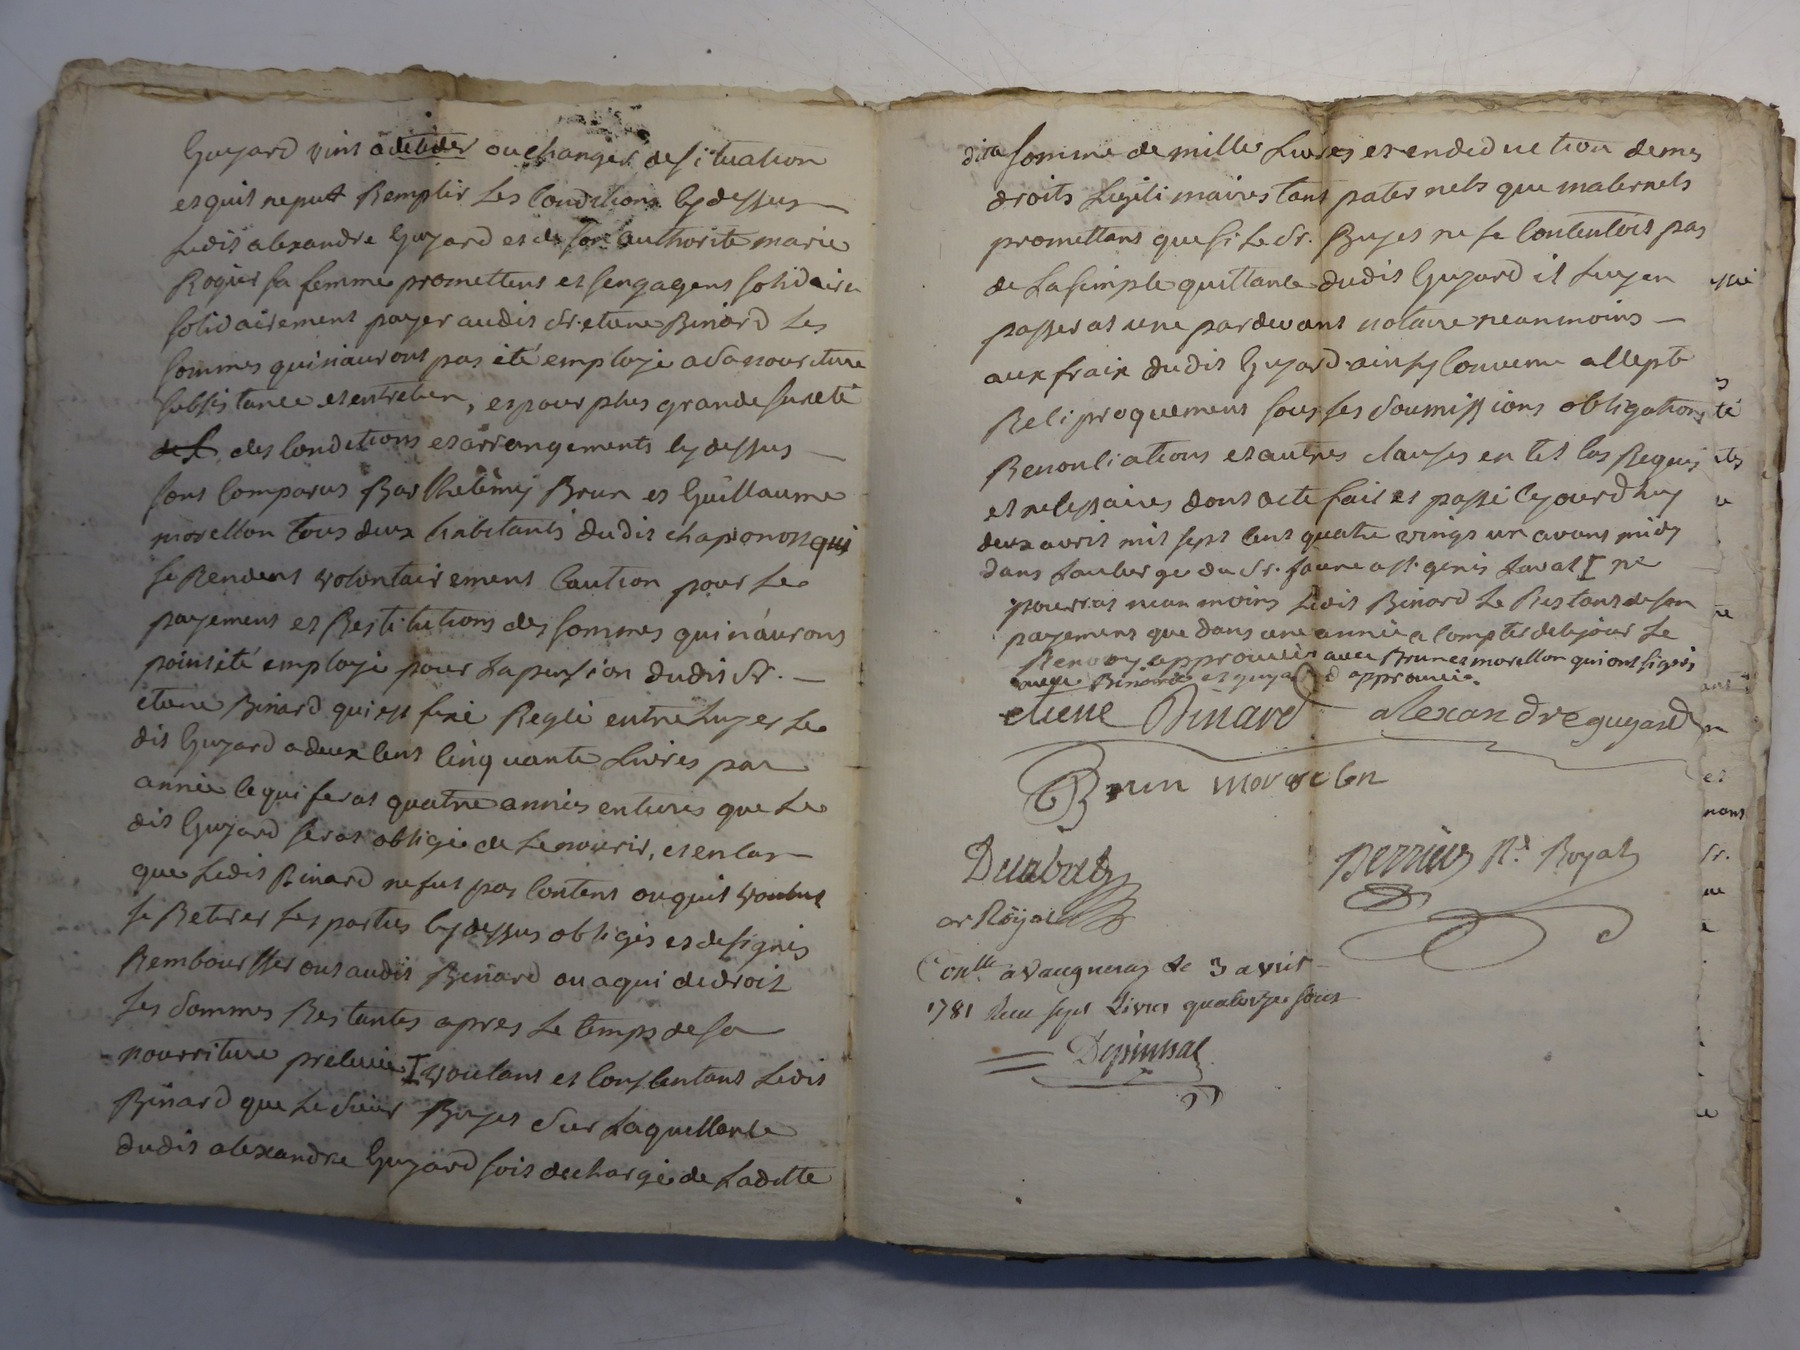 Guyard vint a deceder ou changer de situation
et quil ne put Remplir Les Conditions Cy dessus
Ledit alexandre Guyard et de son authorité marie
Rogier sa femme promettent et sengagent solidaire
solidairement payer audit Sr. etiene Binard Les
sommes qui n'auront pas été employé a sa nouriture
subsistance et entretien, et pour plus grande sureté
des Conditions et arrengements Cy dessus
sont Comparus Barthelémy Brun et Guillaume
morellon tous deux habitants dudit chaponost qui
se Rendent volontairement Caution pour Le
payement et Restitutions des sommes qui n'auront
point été employé pour La pension dudit Sr.
etiene Binard qui est fixé Reglé entre Luy et Le
dit Guyard a deux Cent Cinquante Livres par
année Ce qui feras quatre années entieres que Le
dit Guyard seras obligé de Le nourir, et en Cas
que Ledit Binard ne fut pas Content ou quil voulut
se Retirer Les parties Cy dessus obligés et designés
Rembourseront audit Binard ou a qui de droit
Les sommes Restantes apres Le temps de sa
nourriture I voulant et Consentant Ledit
Binard que Le Sieur Buyet Sur La quittance
dudit alexandre Guyard soit dechargé de Laditte
ditte somme de mille Livres et en deduction de mes
droits Legitimaires tant paternels que maternels
promettant que si Le Sr. Buyet ne se Contentoit pas
de La simple quittance dudit Guyard il Luy en
passeras une par devant notaire neanmoins
aux fraix dudit Guyard ainsy Convenu accepté
Reciproquement sous Les soumissions obligations
Renonciations et autres clauses en tel Cas Requis
et necessaires dont acte fait et passé Cejourdhuy
deux avril mil sept Cent quatre vingt un avant midy
dans Lauberge du Sr. faure a St. genis Laval I ne
pourras neanmoins Ledit Binard Le Restant de son
payement que dans une année a Compter de Ce jour Le
Renvoy approuvé avec Brun et morellon qui ont signés
avec Binard et guyard approuvé.
etiene Binard alexandre guyard
Brun morellon
re Royal
Perrier Nre. Royal
Conlle. a Vaugneray Le 3 avril
1781 Recu sept Livres quatorze sous